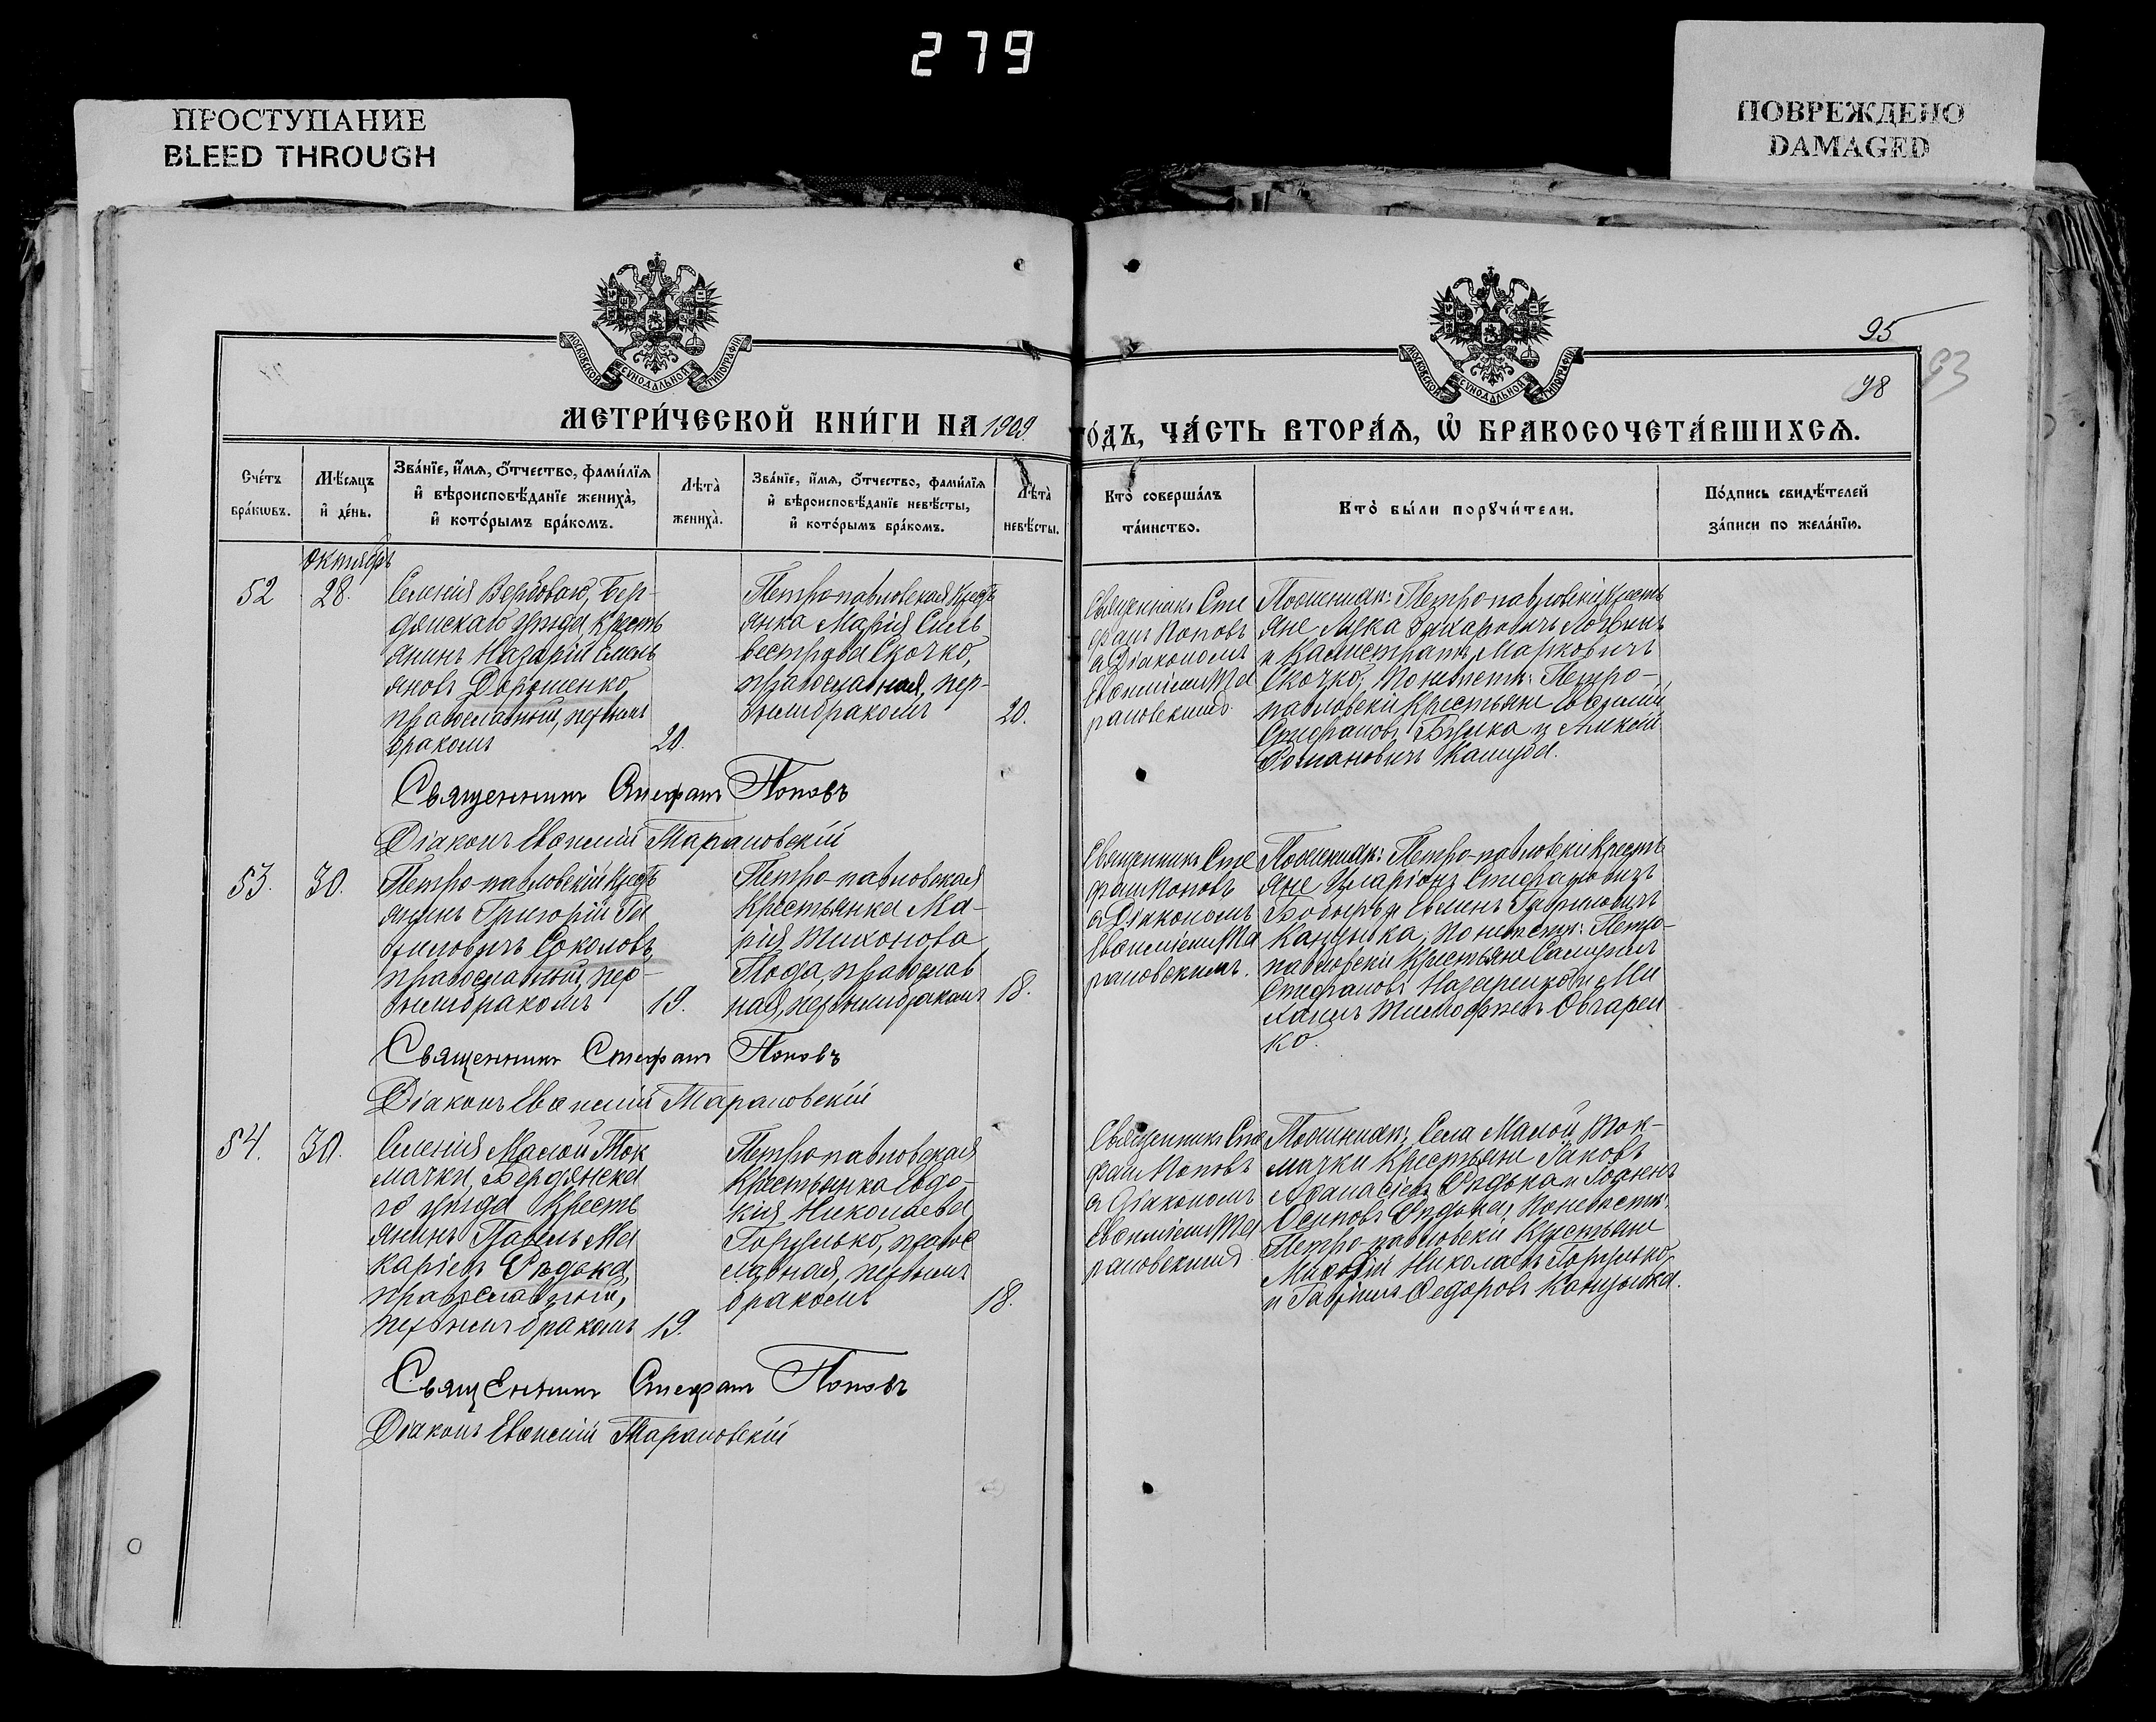 279
ПРОСТУПАНИЕ
BLEED THROUGH
ПОВРЕЖДЕНО
DAMAGED
МОСКОВСКОЙ СѴНОДАЛЬНОЙ ТИПОГРАФІИ
МОСКОВСКОЙ СѴНОДАЛЬНОЙ ТИПОГРАФІИ
95
98
93
МЕТРИ́ЧЕСКОЙ КНИ́ГИ НА 1909
го́дъ, ЧА́СТЬ ВТОРА́Я, Ѡ БРАКОСОЧЕТА́ВШИХСЯ.
Сче́тъ
бра́кѡвъ.
Мѣ́сяцъ
и҆ де́нь.
Зва́нїе, и҆́мя, ѻ҆́тчество, фами́лїя
и҆ вѣроисповѣ́данїе жениха̀,
и҆ кото́рымъ бра́комъ.
Лѣта̀
жениха̀.
Зва́нїе, и҆́мя, ѻ҆́тчество, фами́лїя
и҆ вѣроисповѣ́данїе невѣ́сты,
и҆ кото́рымъ бра́комъ.
Лѣта̀
невѣ́сты.
Кто̀ соверша́лъ
та́инство.
Кто̀ бы́ли порꙋчи́тели.
По́дпись свидѣ́телей
за́писи по жела́нїю.
Октябрь
52
28.
Селенія Вербоваго, Бер-
дянскаго уѣзда, Кресть
янинъ Назарій Емель
яновъ Дорошенко,
православный, первымъ
бракомъ
20.
Петро-павловская Крест
янка Марія Силь
вестрова Скочко,
православная, пер-
вымъ бракомъ
20.
Священникъ Сте
фанъ Поповъ
съ Діакономъ
Евѳиміемъ Та
рановскимъ.
Поженихѣ: Петро-павловскіи Кресть
яне Лука Захаровичъ Логвинъ
и Калистратъ Марковичъ
Скочко; Поневѣстѣ: Петро-
павловскіи Крестьяне Евѳимій
Стефановъ
Романовичъ
Священникъ Стефанъ Поповъ
Діаконъ Евѳимій Тарановскій
53.
30.
Петро-павловскій Крест
янинъ Григорій Га
вриловичъ Соколовъ,
православный, пер-
вымъ бракомъ
19.
Петро-павловская
Крестьянка Ма-
рія Тихонова
православ
ная, первымъ бракомъ
18.
Священникъ Сте
фанъ Поповъ
съ Діакономъ
Евѳиміемъ Та
рановскимъ.
Поженихѣ: Петро-павловскіи Кресть
яне Иларіонъ Стефановичъ
Бобырь и Семенъ Гавриловичъ
Канцыбка; Поневѣстѣ: Петро-
павловскіи Крестьяне
Стефановъ Назаренко и Ми
хаилъ Тимоѳеевъ Овчарен
ко.
Священникъ Стефанъ Поповъ
Діаконъ Евѳимій Тарановскій
54.
30.
Селенія Малой Ток
мачки, Бердянска
го уѣзда Кресть
янинъ Павелъ Ма
каріевъ Рѣдька,
православный,
первымъ бракомъ
19.
Петро павловская
Крестьянка Евдо-
кія Николаева
Горпулько, правос
лавная, первымъ
бракомъ
18.
Священникъ Сте
фанъ Поповъ
съ Діакономъ
Евѳиміемъ Та
рановскимъ
Поженихѣ: Села Малой Ток-
мачки Крестьяне Іаковъ
Аѳанасіевъ Рѣдька и Іоаннъ
Осиповъ Рѣдька; Поневѣстѣ:
Петро-павловскіи Крестьяне
Николаевъ Горпулько
и Гавріилъ Ѳедоровъ Канцыбка.
Священникъ Стефанъ Поповъ
Діаконъ Евѳимій Тарановскій